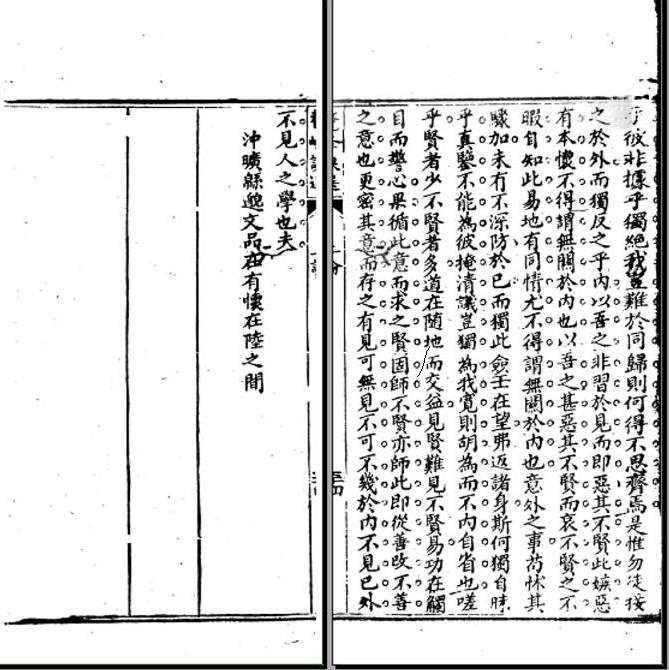 彼非據乎獨絕我豈難於同歸則何得不思齊焉是惟勿徒接
之於外而獨反之乎内以吾之非習於見而即惡其不賢此嫉惡
有本懷不得謂無關於内也以吾之甚惡其不賢而哀不賢之不
暇自知此易地有同情尤不得謂無關於内也意外之事苟怵其
驟加未有不深防於己而獨此僉壬在望弗返諸身斯何獨自昧
乎真鑒不能為彼掩清議豈獨為我寬則胡為而不内自省也嗟
乎賢者少不賢者多道在隨地而交益見賢難見不賢易功在觸
目而警心果循此意而求之賢固師不賢亦師此即從善改不善
之意也更密其意而存之有見可無見不可不幾於内不見己外
不見人之學也夫
沖曠緜邈文品在有懷在陸之間